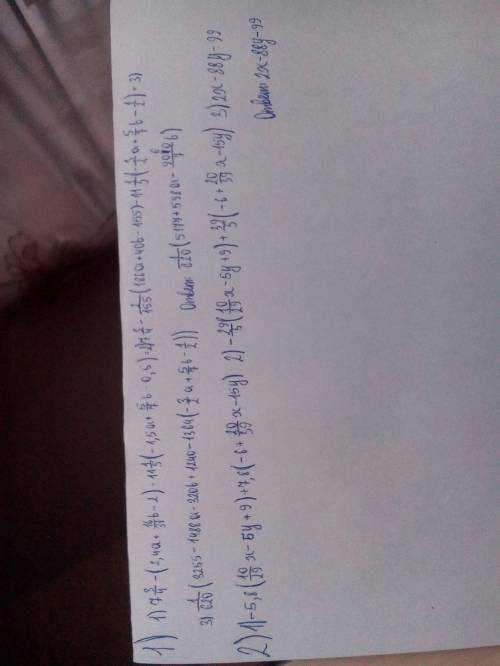 1) 1) 7 3/4 - (2,4a + 16/31 b - 2) - 11 (-1,5a + 5/7 b - 0,5) = 2) 7 3/4 - 1/155 (186a + 40b - 155) - 11 (-3/2 a + 5/7 b - 1/2) = 3)
3) 1/620 (3255 - 1488a - 320b + 1240 - 1364 (-3/2 a + 5/7 b - 1/2)) Ответ: 1/620 (5177 + 558a - b)
2) 1) -5,8 (10/29 x - 5y + 9) + 7,8 (-6 + 20/39 x - 15y) 2) -29/5 (10/29 x - 5y + 9) + 39/5 (-6 + 20/39 x - 15y) 3) 2x - 88y - 99
Ответ: 2x - 88y - 99